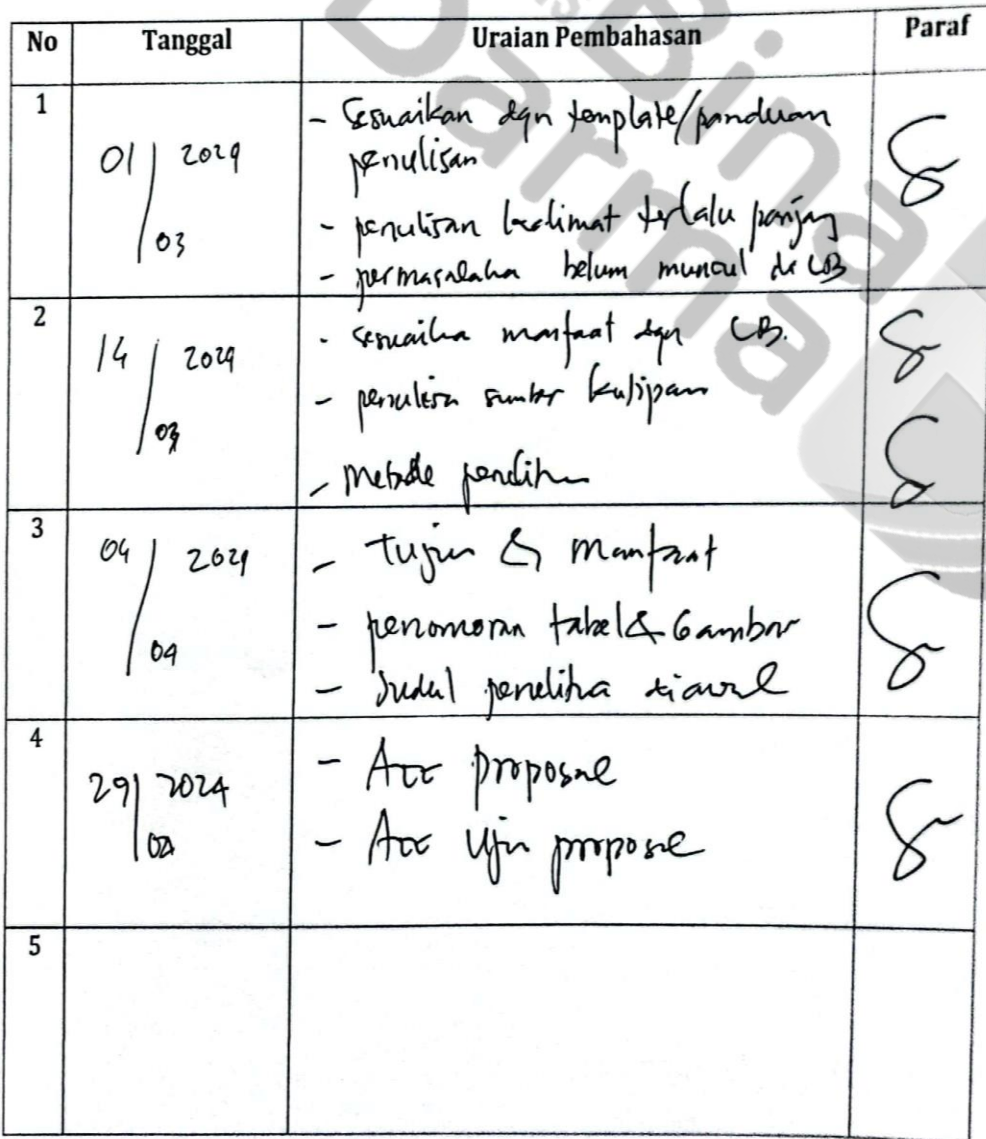 No Tanggal Uraian Pembahasan Paraf
1
01/03 2024
- Sesuaikan dgn template/panduan
penulisan
- penulisan kalimat terlalu panjang
- permasalahan belum muncul di LB
2
14/03 2024
- sesuaikan manfaat dgn LB.
- penulisan sumber kutipan
- Metode penelitian
3
04/04 2024
- Tujuan & Manfaat
- penomoran tabel & Gambar
- Judul penelitian diawal
4
29/04 2024
- Acc proposal
- Acc Ujian proposal
5
Bina
Darma